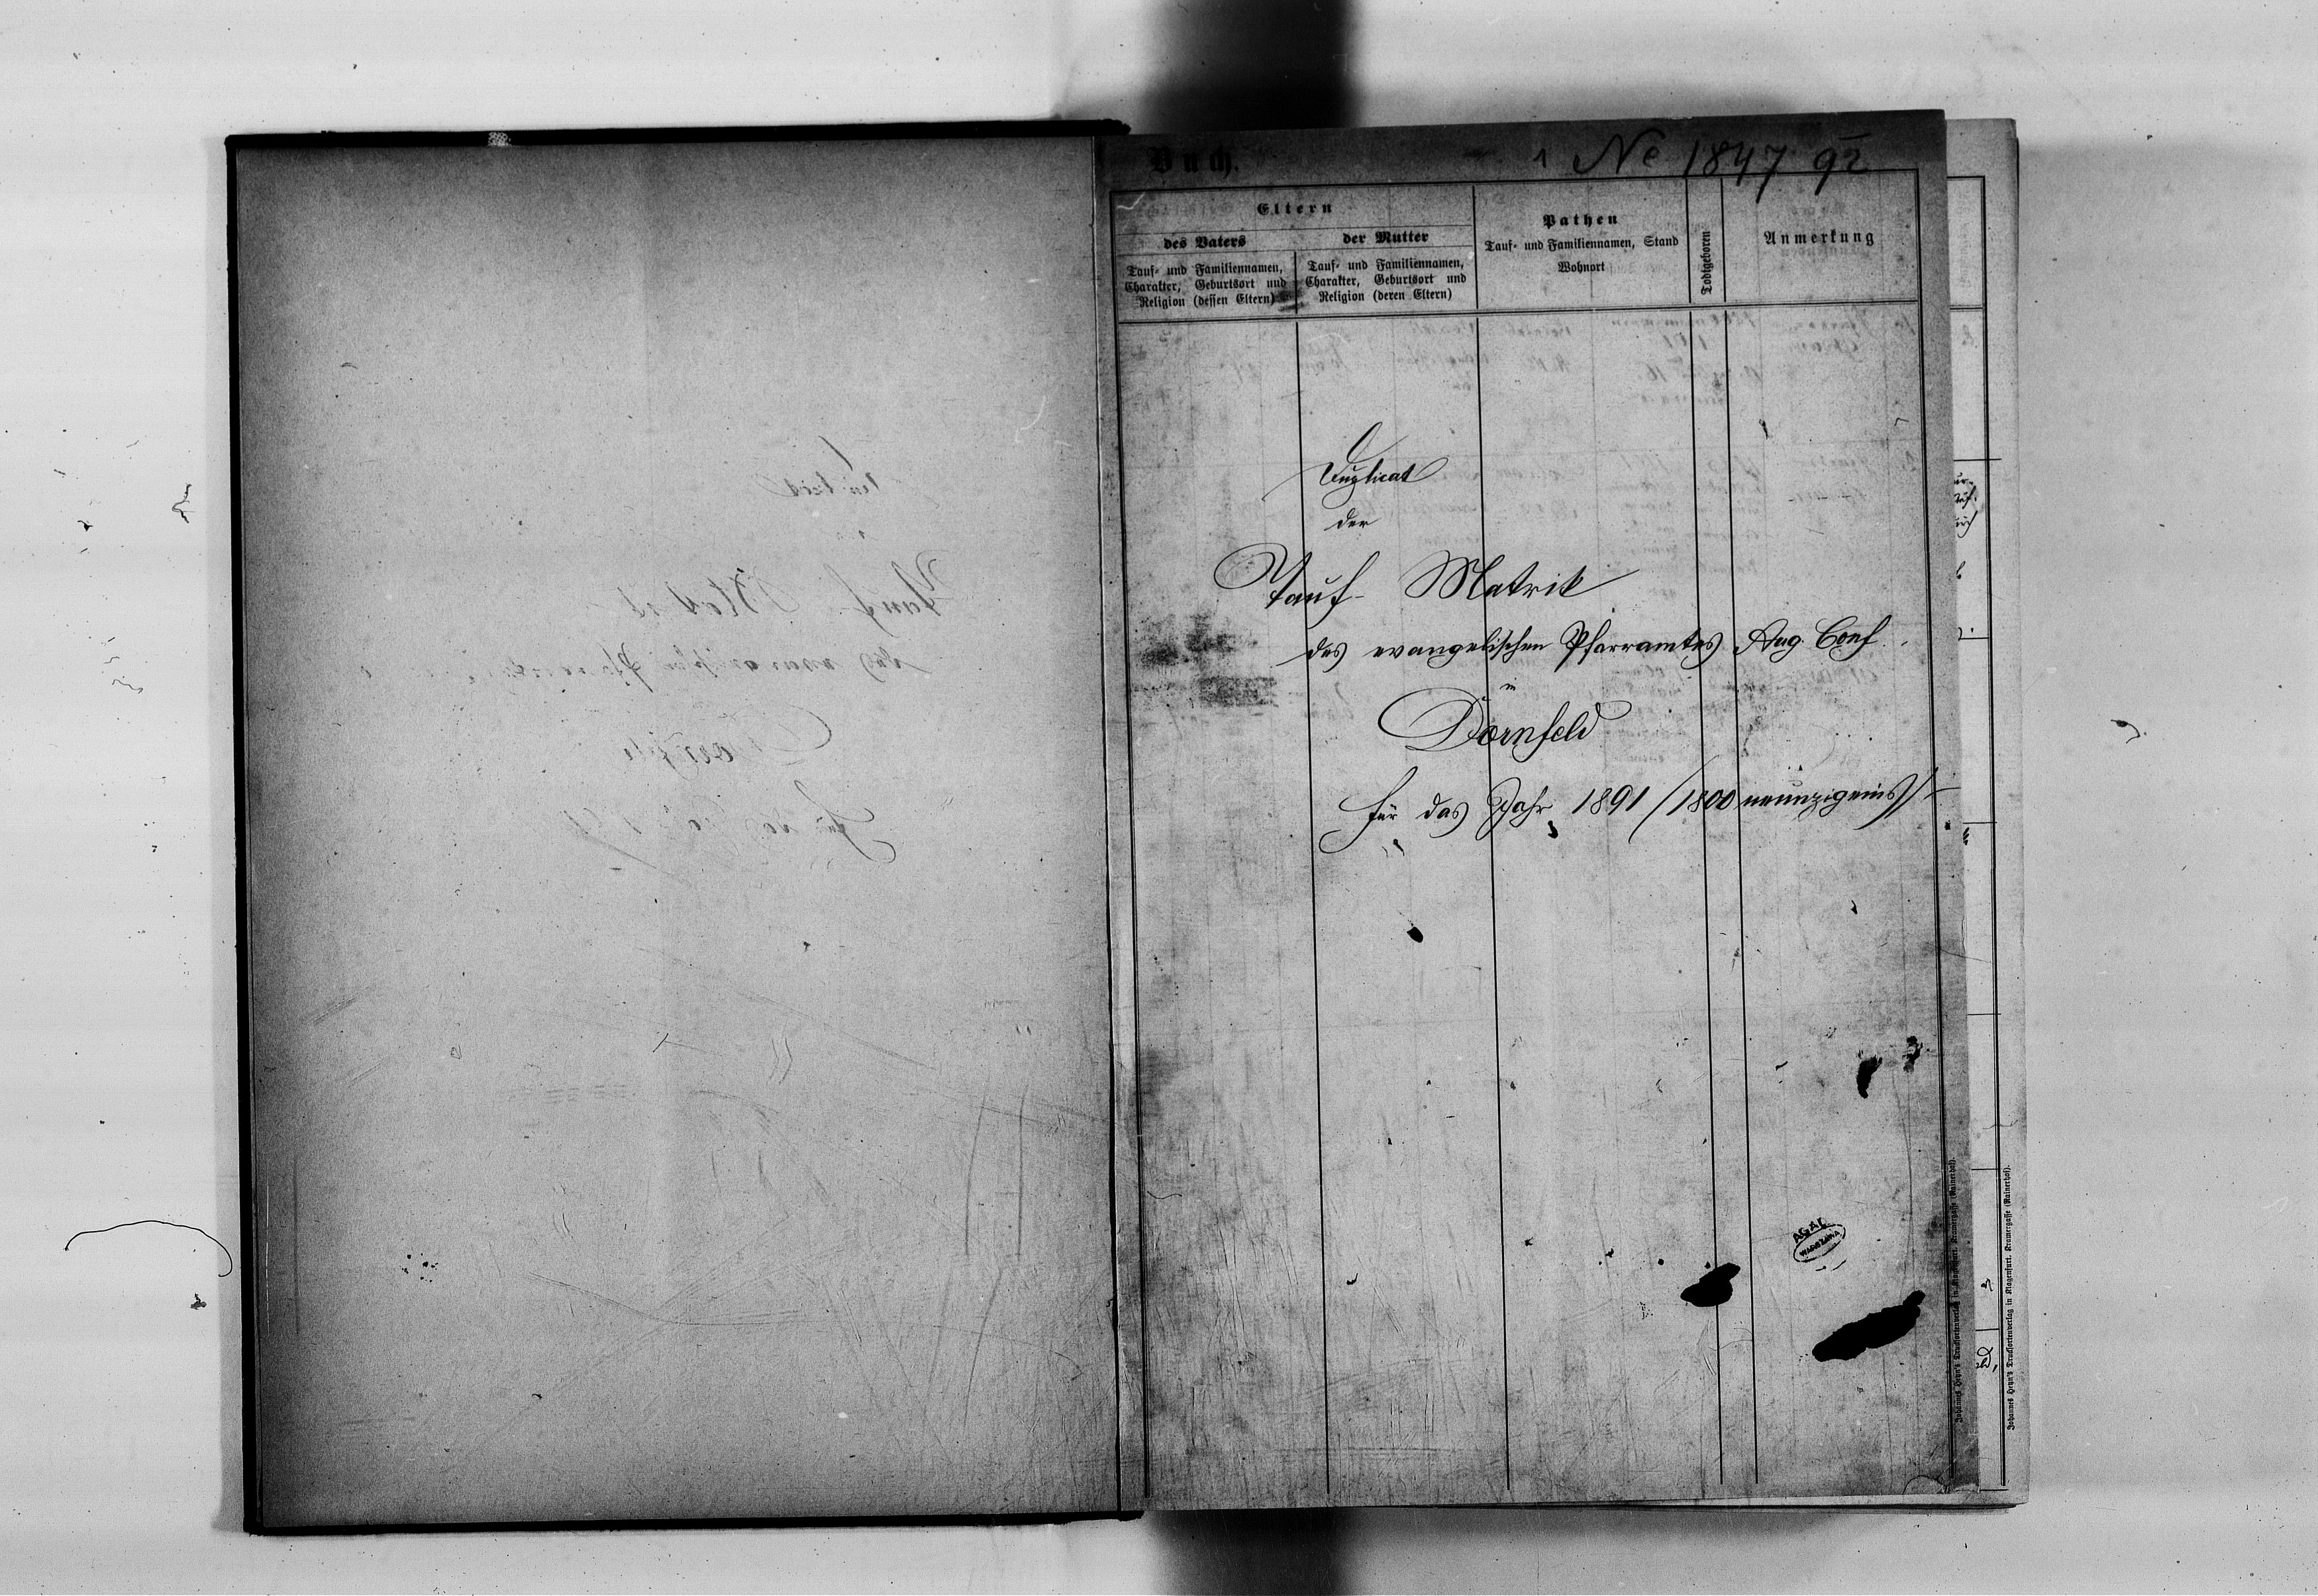 Buch.
1 No 1847 92
Eltern
des Vaters
der Mutter
Pathen
Tauf- und Familiennamen, Stand
Wohnort
Todtgeboren
Anmerkung
Tauf- und Familiennamen,
Charakter, Geburtsort und
Religion (dessen Eltern)
Tauf- und Familiennamen,
Charakter, Geburtsort und
Religion (deren Eltern)
Duplicat
der
Tauf- Matrik
des evangelischen Pfarramtes Aug. Conf.
in
Dornfeld
für das Jahr 1891 /1800 neunzigeins/
AGAD
WARSZAWA
Johannes Heyn's Drucksortenverlag in Klagenfurt. Kramergasse (Rainerhof).
Johannes Heyn's Drucksortenverlag in Klagenfurt. Kramergasse (Rainerhof).